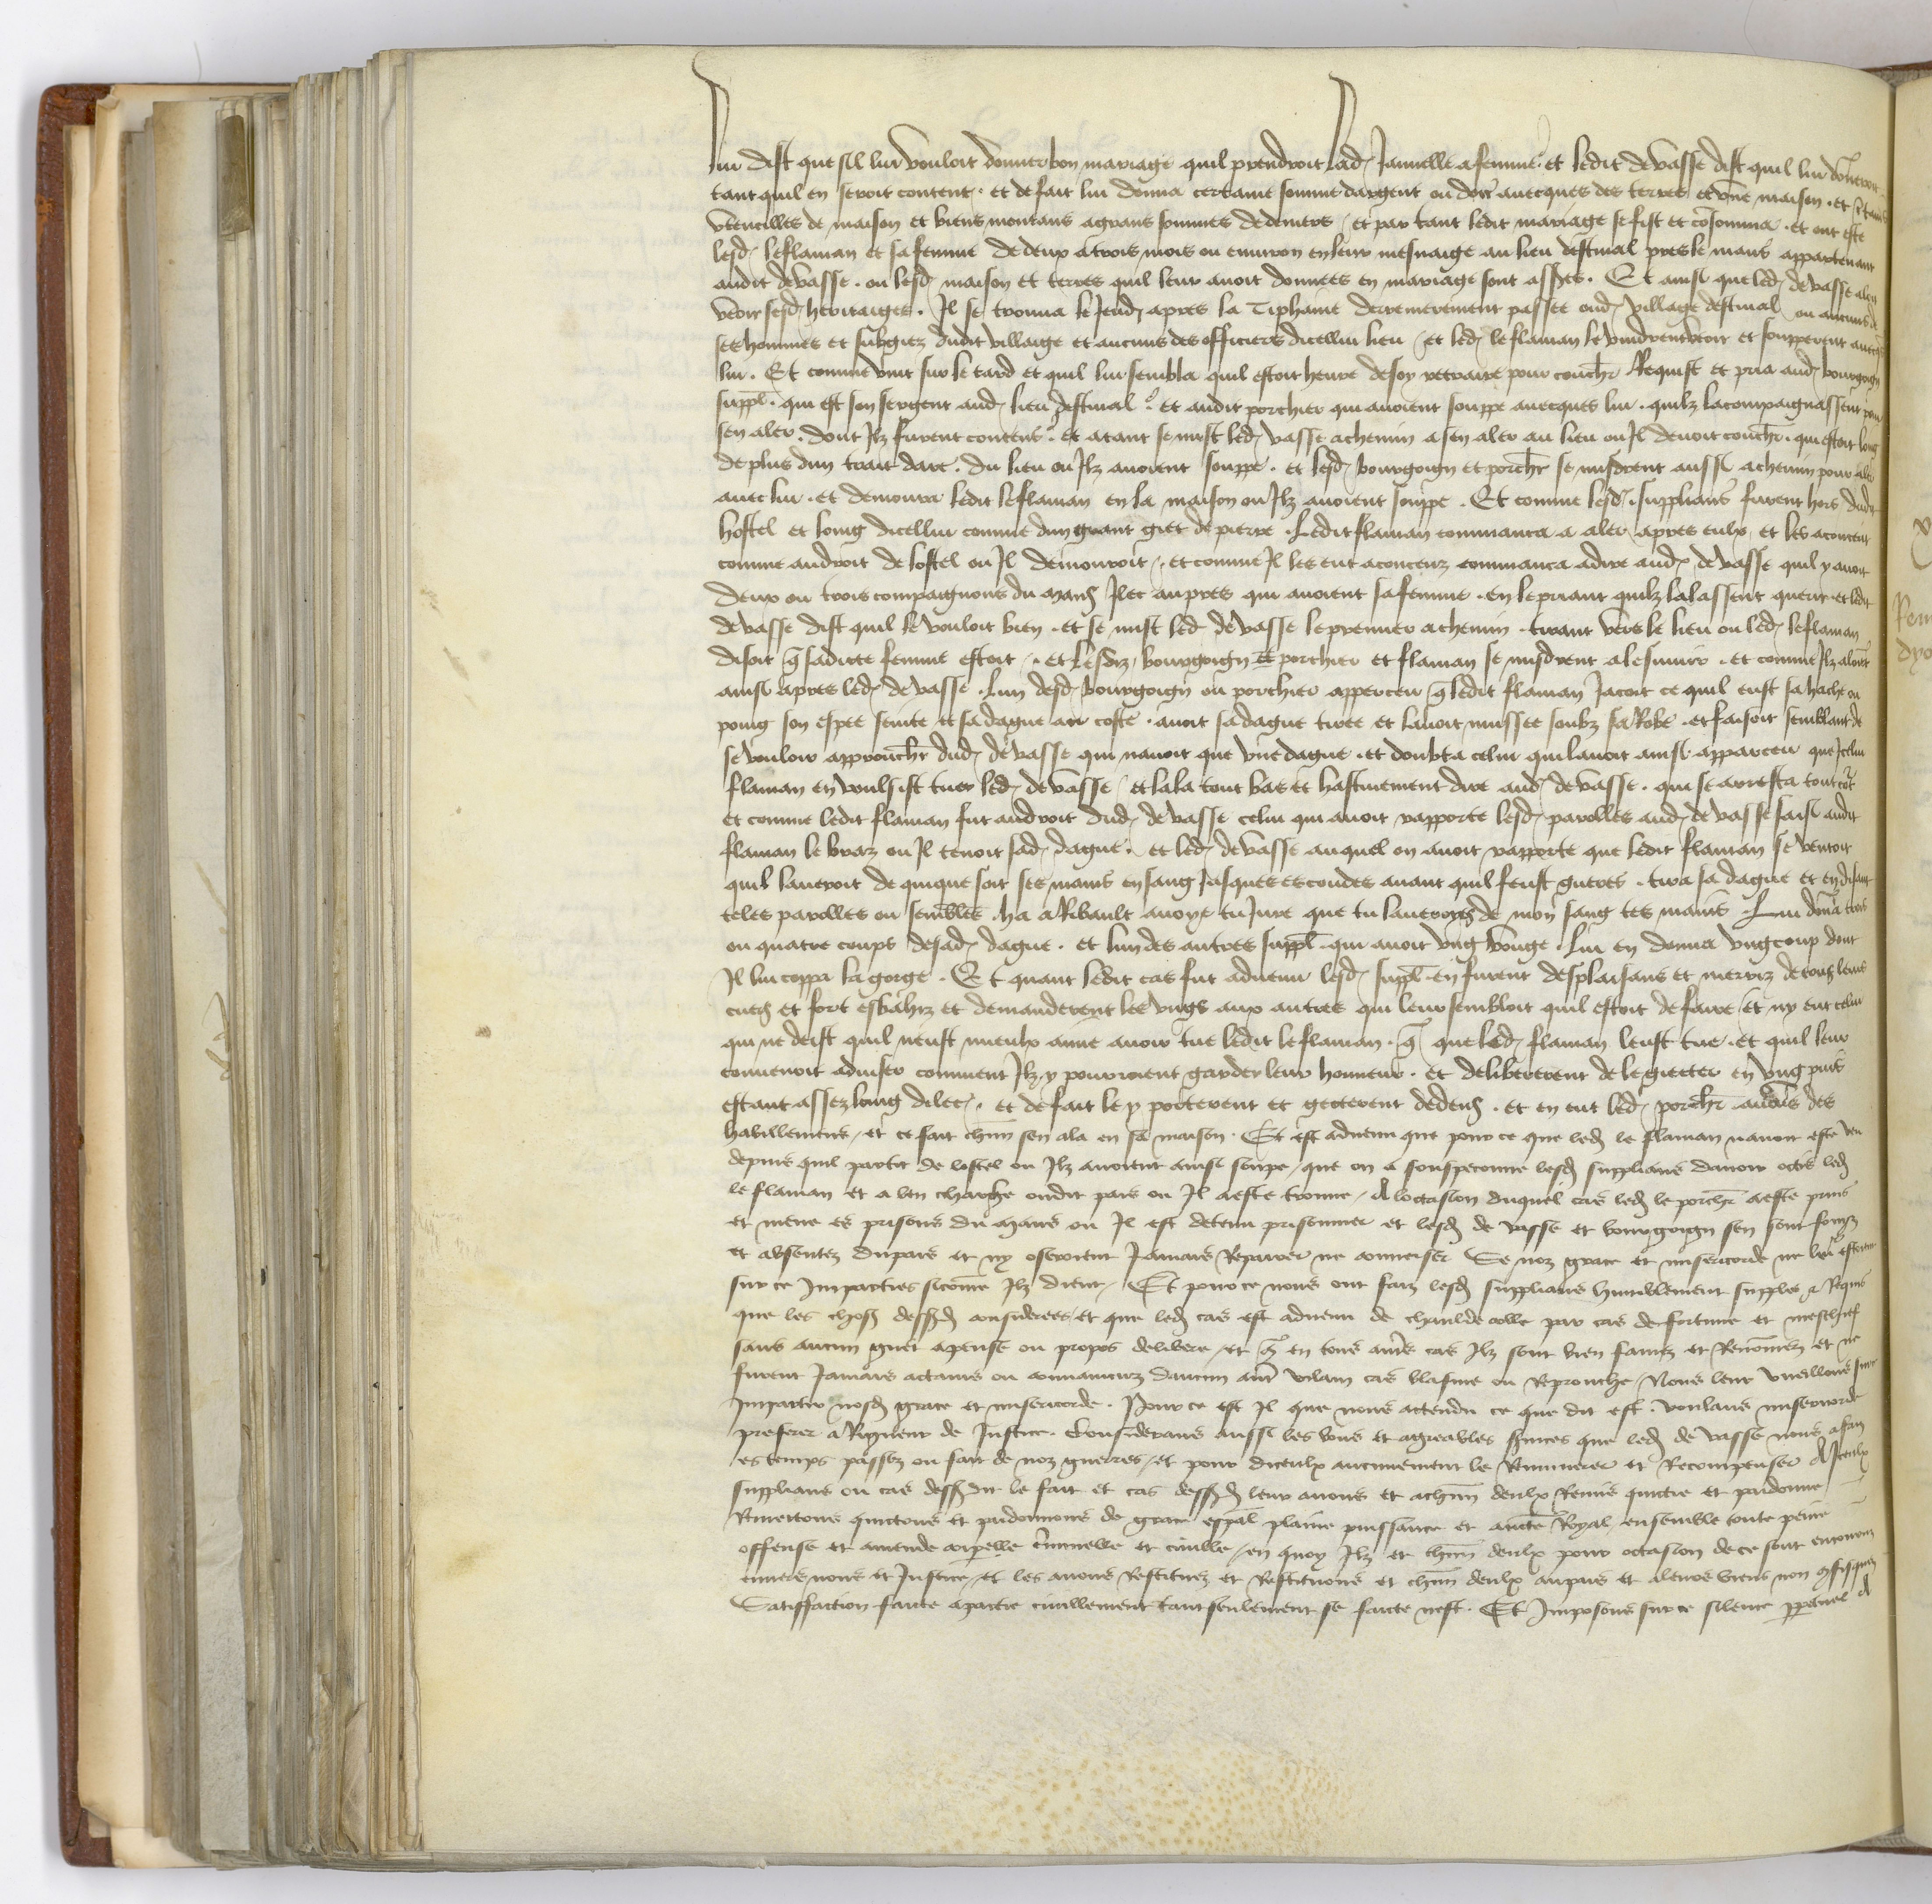 lui dist que sil lui vouloit donner bon mariage quil prendroit lad. Jannette a femme. et ledit de vasse dist quil lui donneroit
tant quil en seroit content. et de fait lui donna certaine somme dargent ou dor avecques des terres et une maison. et certains
utencilles de maison et biens montans a grans sommes de deniers / et par tant ledit mariage se fist et consomma. et ont este
lesd. leflaman et sa femme de deux a trois mois ou environ en leur mesnaige au lieu destival pres le mans appartenant
audit de vasse. ou lesd. maison et terres quil leur avoit donnees en mariage sont assises. Et ainsi que led. de vasse aloit
veoir sesd. heritaiges. Il se trouva le Jeud. apres la Tiphaine derrenierement passee oud. village destival ou aucuns de
ses hommes et subgiez dudit villaige et aucuns des officiers dicellui lieu / et led. leflaman le vindrent veoir et soupperent avecqs
lui. Et comme vint sur le tard et quil lui sembla quil estoit heure de soy retraire pour couchr Requist et pria aud. bourgoign
suppl. qui est son sergent aud. lieu destival. et audit porchier qui avoient souppe avecques lui. quilz lacompaignassent pour
sen aler. dont Ilz furent contens. et atant se mist led. vasse a chemin a sen aler au lieu ou Il devoit couchr. qui estoit loing
de plus dun trait darc. du lieu ou Ilz avoient souppe. et lesd. bourgoign et porchr se misdrent aussi a chemin pour aler
avec lui. et demoura ledit leflaman en la maison ou Ilz avoient souppe. Et comme lesd. supplians furent hors dudit
hostel et loing dicellui comme dun grant giet de pierre. Ledit flaman commanca a aler apres eulx et les aconceut
comme androit de lostel ou Il demouroit. et comme Il les eut aconceuz commanca a dire aud. de vasse quil y avoit
deux ou trois compaignons du mans Ilec aupres qui avoient sa femme. en le priant quilz lalassent querir. et ledit
de vasse dist quil le vouloit bien. et se mist led. de vasse le premier a chemin. tirant vers le lieu ou led. leflaman
disoit q sadicte femme estoit. et lesdiz bourgoign et porchier et flaman se misdrent a le suivir. et comme Ilz aloient
ainsi apres led. de vasse. Lun desd. bourgoign ou porchier apperceu q ledit flaman Jacoit ce quil eust sa hache ou
poing son espee seinte et sa dague au coste. avoit sa dague tiree et lavoit mussee soubz sa Robe. et faisoit semblant de
se vouloir approuchr dud. de vasse qui navoit que une dague. et doubta celui qui lavoit ainsi apparceu que Icelui
flaman en voulsist tuer led. de vasse / et lala tout bas et hastivement dire aud. de vasse. qui se arresta tout cot
et comme ledit flaman fut androit dud. de vasse celui qui avoit rapporte lesd. parolles aud. de vasse saisi audit
flaman le braz ou Il tenoit sad. dague. et led. de vasse auquel on avoit rapporte que ledit flaman se ventoit
quil laveroit de quique soit ses mains en sang Jusques es coudes avant quil feust gueres. tira sa dague et en disant
teles parolles ou semblables. ha a Ribault avoye tu Jure que tu laveroyes de mon sang tes mains. Lui donna trois
ou quatre coups de sad. dague. et lun des autres suppl. qui avoit ung vouge. Lui en donna ung coup dont
Il lui coppa la gorge. Et quant ledit cas fut advenu lesd. suppl. en furent desplaisans et marriz de tous leurs
cuers et fort esbahiz et demanderent les ungs aux autres qui leur sembloit quil estoit de faire / et ny eut celui
qui ne deist quil neust mieulx aime avoir tue ledit leflaman. q que led. flaman leust tue. et quil leur
convenoit adviser comment Ilz y pourroient garder leur honneur. et delibererent de le giecter en ung puis
estant assez loing dilec. et de fait le y porterent et gecterent dedens. et en eut led. porchr aucuns des
habillemens / et ce fait chun sen ala en sa maison. Et est advenu que pour ce que led. le flaman navoit este veu
depuis quil partit de lostel ou Ilz avoient ainsi soupe / que on a souspeconne lesd. supplians davoir occis led.
le flaman et a len cherche oudit puis ou Il a este trouve / A loccasion duquel cas led. le porchr a este prins
et mene es prisons du mans ou Il est detenu prisonnier et lesd. de vasse et bourgoign sen sont fouiz
et absentez du pais et ny oseroient Jamais Reparer ne converser Se noz grace et misericorde ne leur estoient
sur ce Imparties sicomme Ilz dient / Et pour ce nous ont faiz lesd. supplians humblement supplier et Requis
que les choses dessusd. considerees / et que led. cas est advenu de chaulde colle par cas de fortune et meschief
sans aucun guet apense ou propos delibere / et q en tous autres cas Ilz sont bien famez et Renommez et ne
furent Jamais actains ou convaincuz daucun autre vilain cas blasme ou Reprouche / Nous leur vueillons sur ce
Impartir nosd. grace et misericorde. Pour ce est Il que nous actendu ce que dit est. voulans misericorde
preferer a Rigueur de Justice. Considerans aussi les bons et agreables services que led. de vasse nous a faiz
es temps passez ou fait de noz guerres / et pour diceulx aucunement le Remunerer et Recompenser A Iceulx
supplians ou cas dessusdit le fait et cas dessusd. leur avons et a chun deulx Remis quicte et pardonne
Remectons quictons et pardonnons de grace especial plaine puissance et aucte Royal ensemble toute peine
offense et amende corporelle criminelle et civille / en quoy Ilz et chun deulx pour occasion de ce sont encouruz
envers nous et Justice / et les avons Restituez et Restituons et chun deulx au pais et a leurs biens non confisquez
Satisfaction faicte a partie civillement tant seulement se faicte nest. Et Imposons sur ce silence perpetuel A